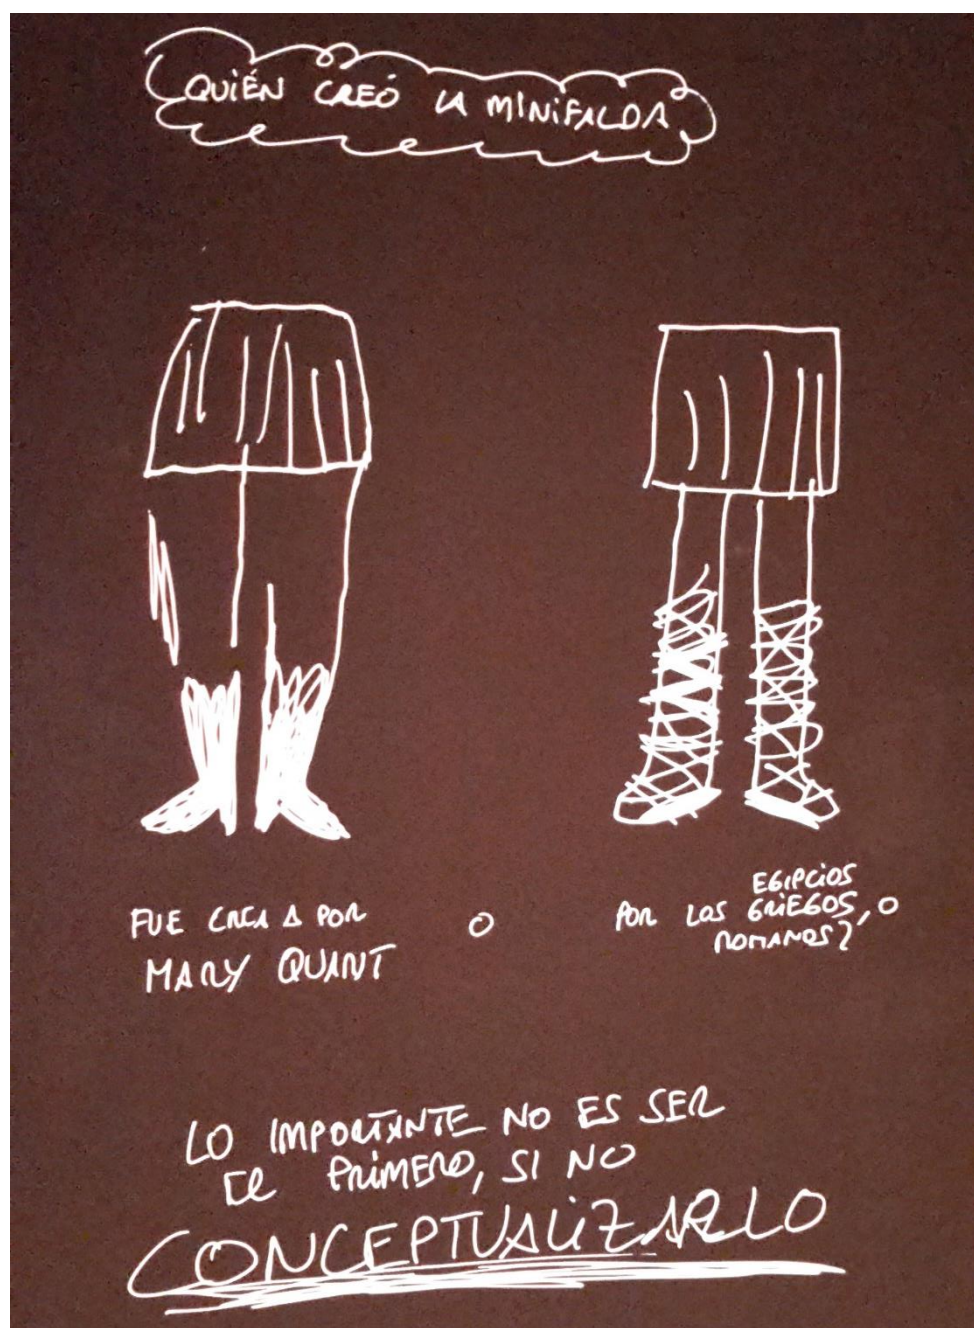 QUIÉN CREÓ LA MINIFALDA
FUE CREA A POR
MARY QUANT
O
EGIPCIOS
POR LOS GRIEGOS, O
ROMANOS?
LO IMPORTANTE NO ES SER
EL PRIMERO, SI NO
CONCEPTUALIZARLO